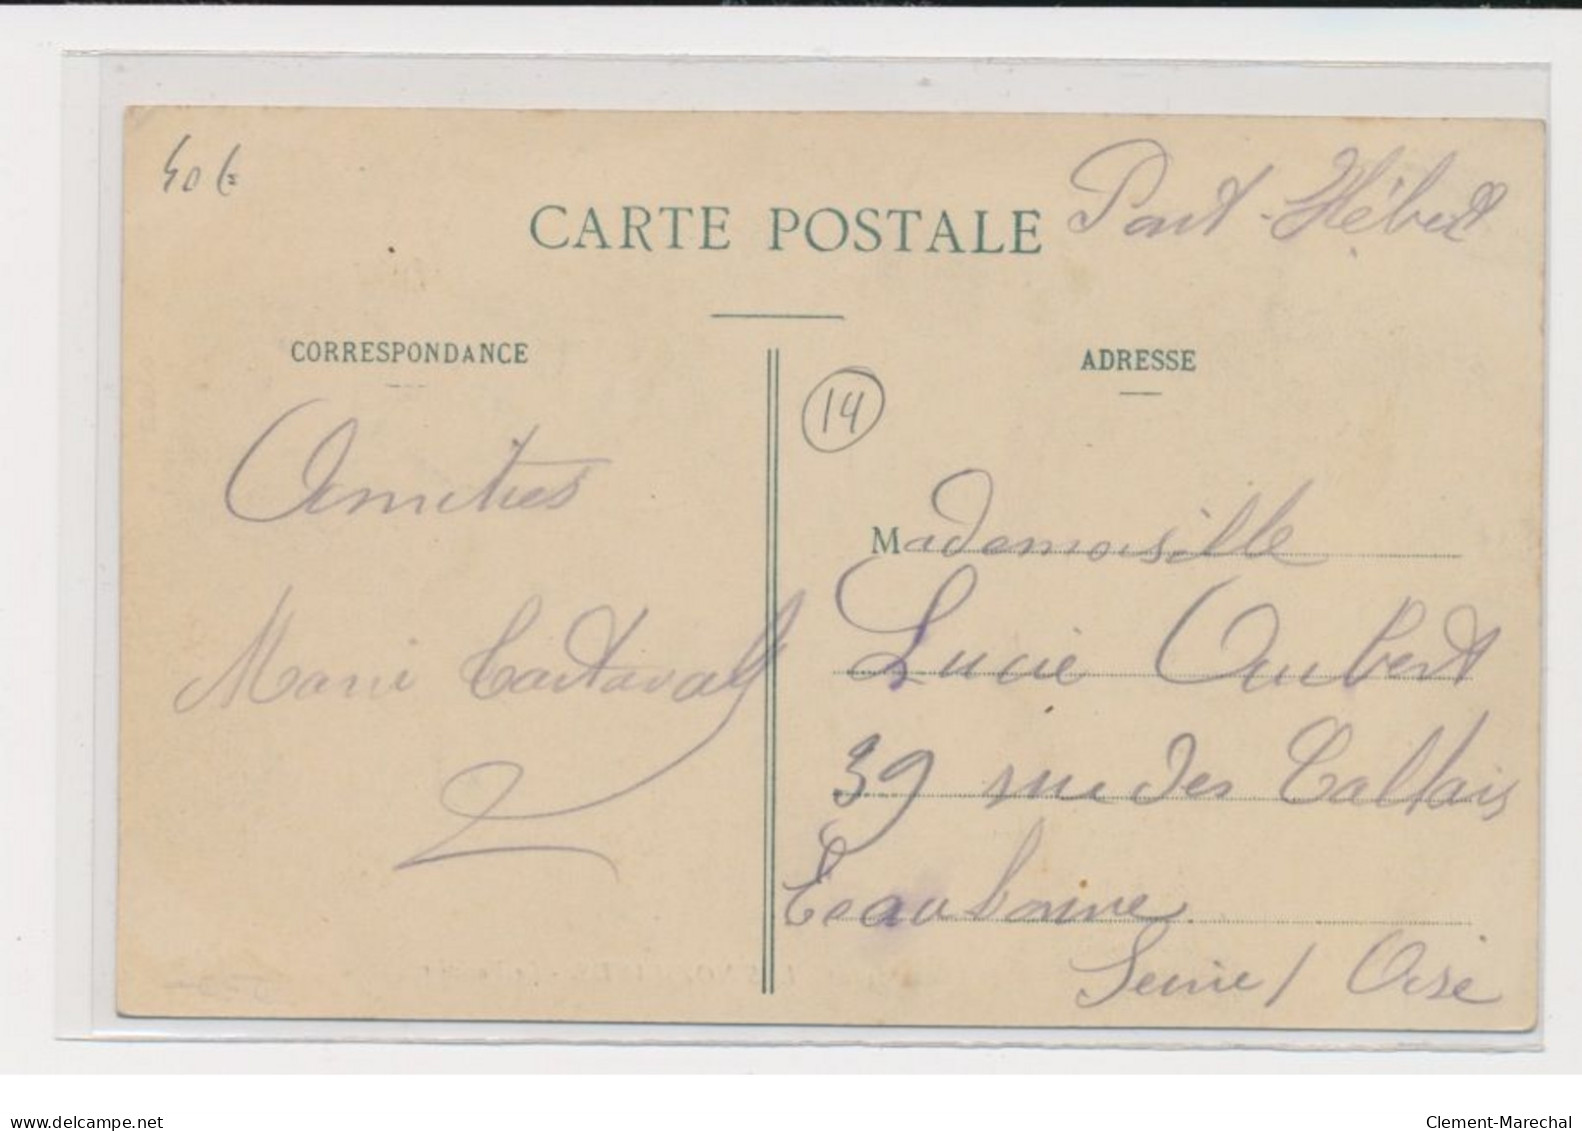 40 €
Pont-Hébert
CARTE POSTALE
CORRESPONDANCE
ADRESSE
14
Amitiés
Marie
Mademoiselle
Lucie Aubert
39 rue des Callais
Eaubonne
Seine / Oise
www.delcampe.net
Clement-Marechal